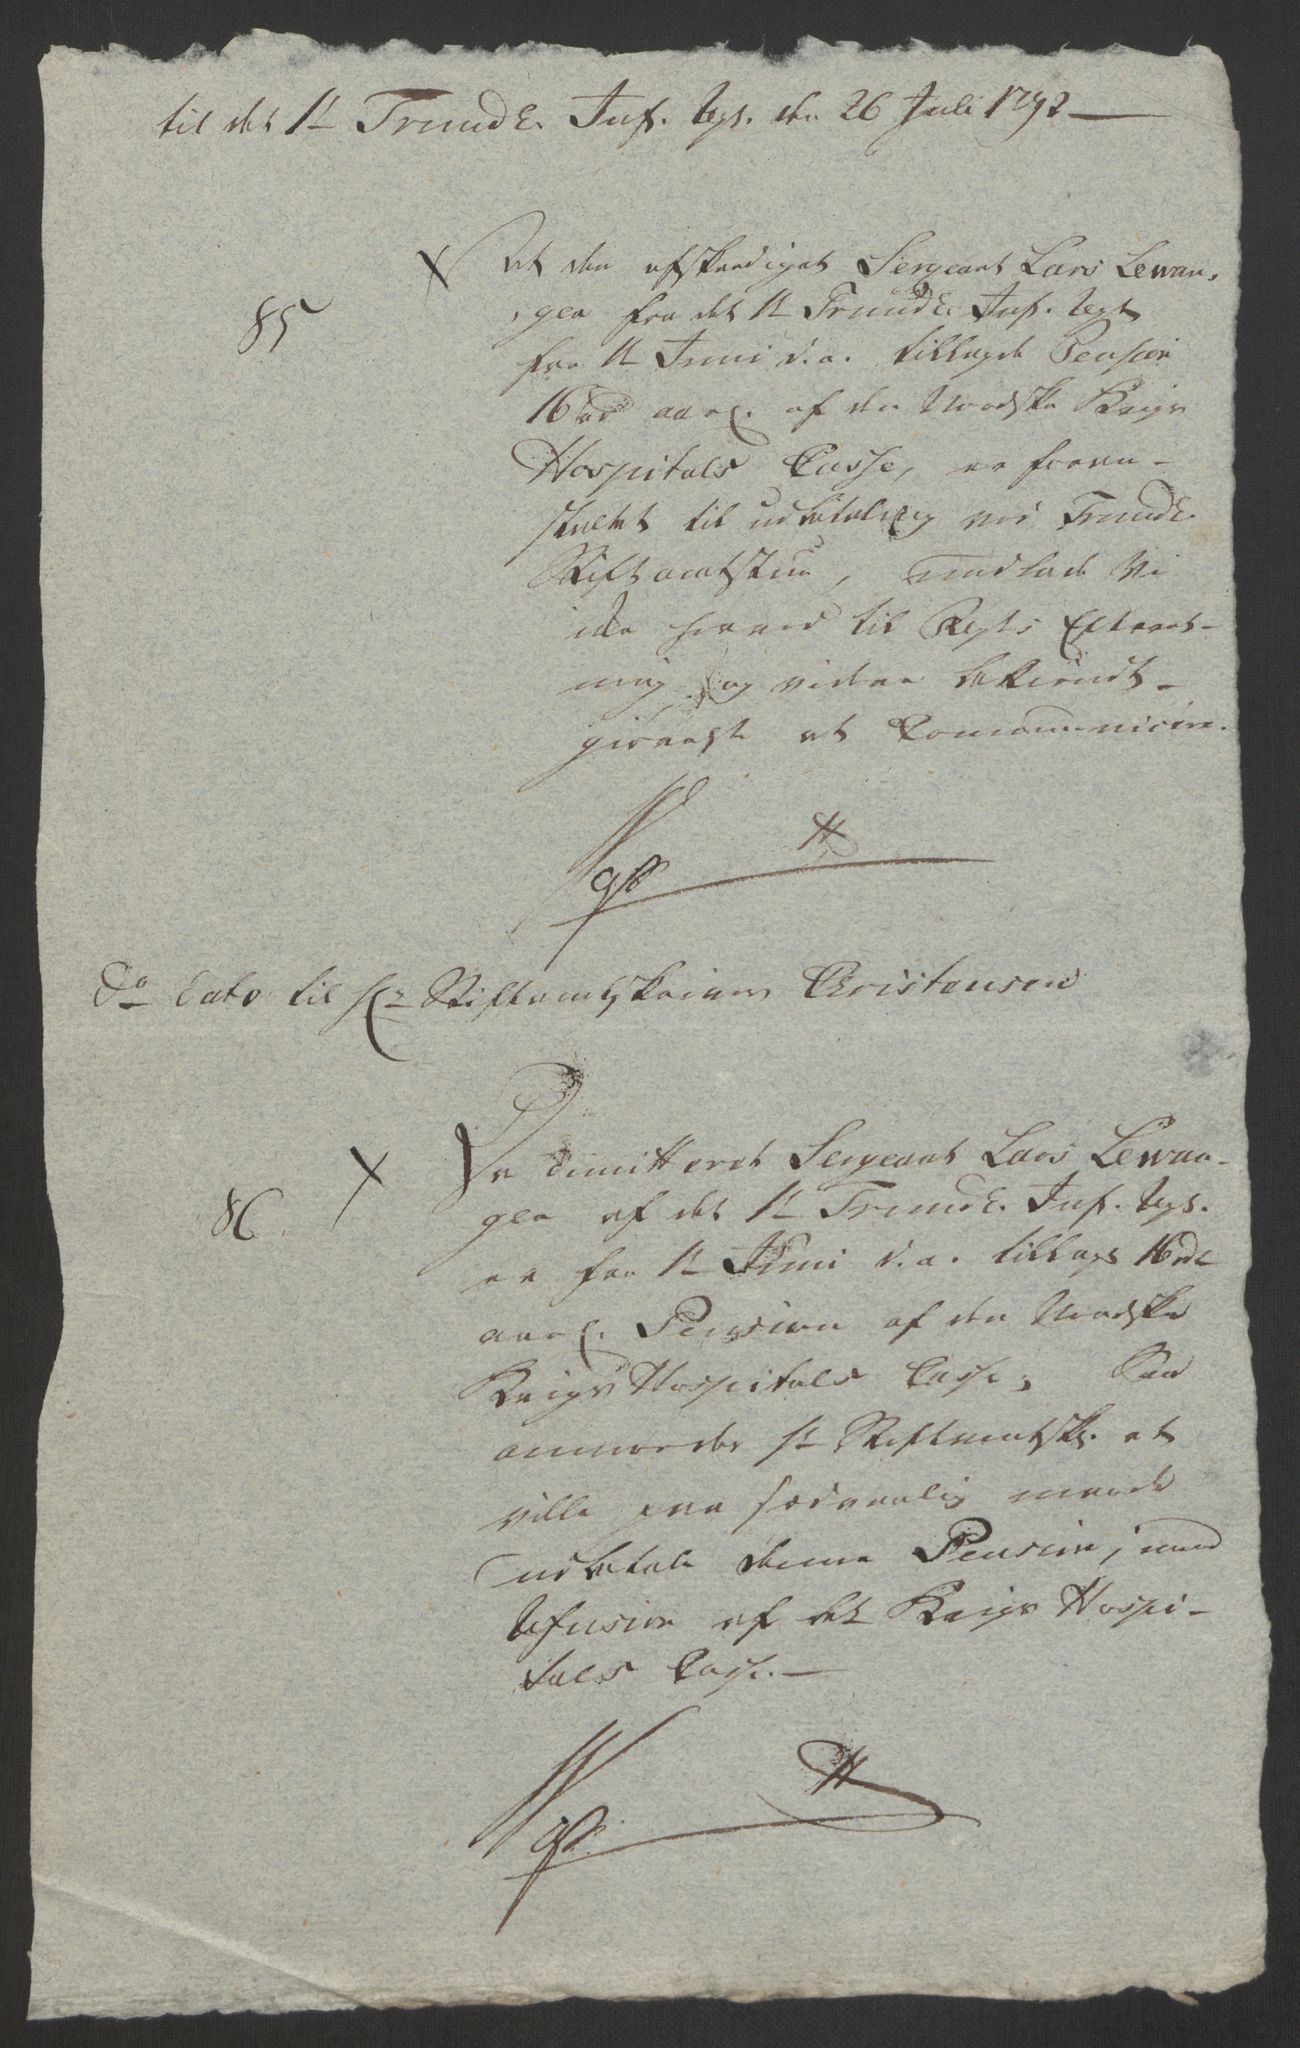 til det 1te Trundh. Inf. Regt. den 26 Juli 1792
85
At den afskeediget Sergeant Lars Lewan-
gen fra det 1te Trundh. Inf. Regt
fra 1te Juni d. a. tillagde Pension
16 rd aarl. af den Norske Krigs
Hospitals Casse, er foran-
staltet til udbetaling ved Trundh.
Stiftamtstue, undlade Vi
ikke herved til Regts Efterret-
ning og videre bekiendt-
giørelse at Communicere.
Do dato til Hr Stiftamtskriver Christensen
86
Da dimitteret Sergeant Lars Lewan-
gen af det 1te Trundh. Inf. Regt.
er fra 1te Juni d. a. tillagt 16 rdl
aarl. Pension af den Norske
Krigs Hospitals Casse; Saa
anmodes Hr Stiftamtskr. at
ville paa sædvanlig maade
udbetale denne Pension, imod
Refusion af det Krigs Hospi-
tals Casse.